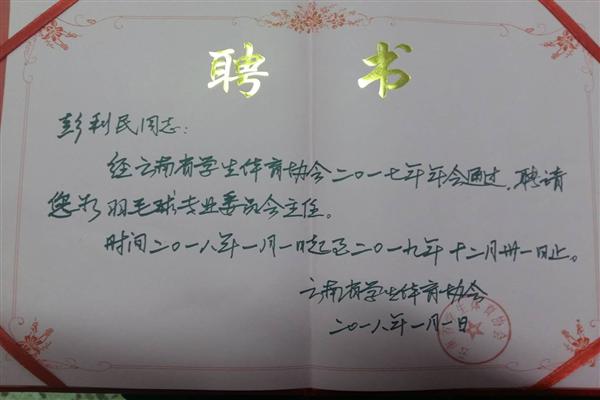 聘 书
彭利民同志:
经云南省学生体育协会二〇一七年年会通过,聘请
您为羽毛球专业委员会主任。
时间二〇一八年一月一日起至二〇一九年十二月卅一日止。
云南省学生体育协会
二〇一八年一月一日